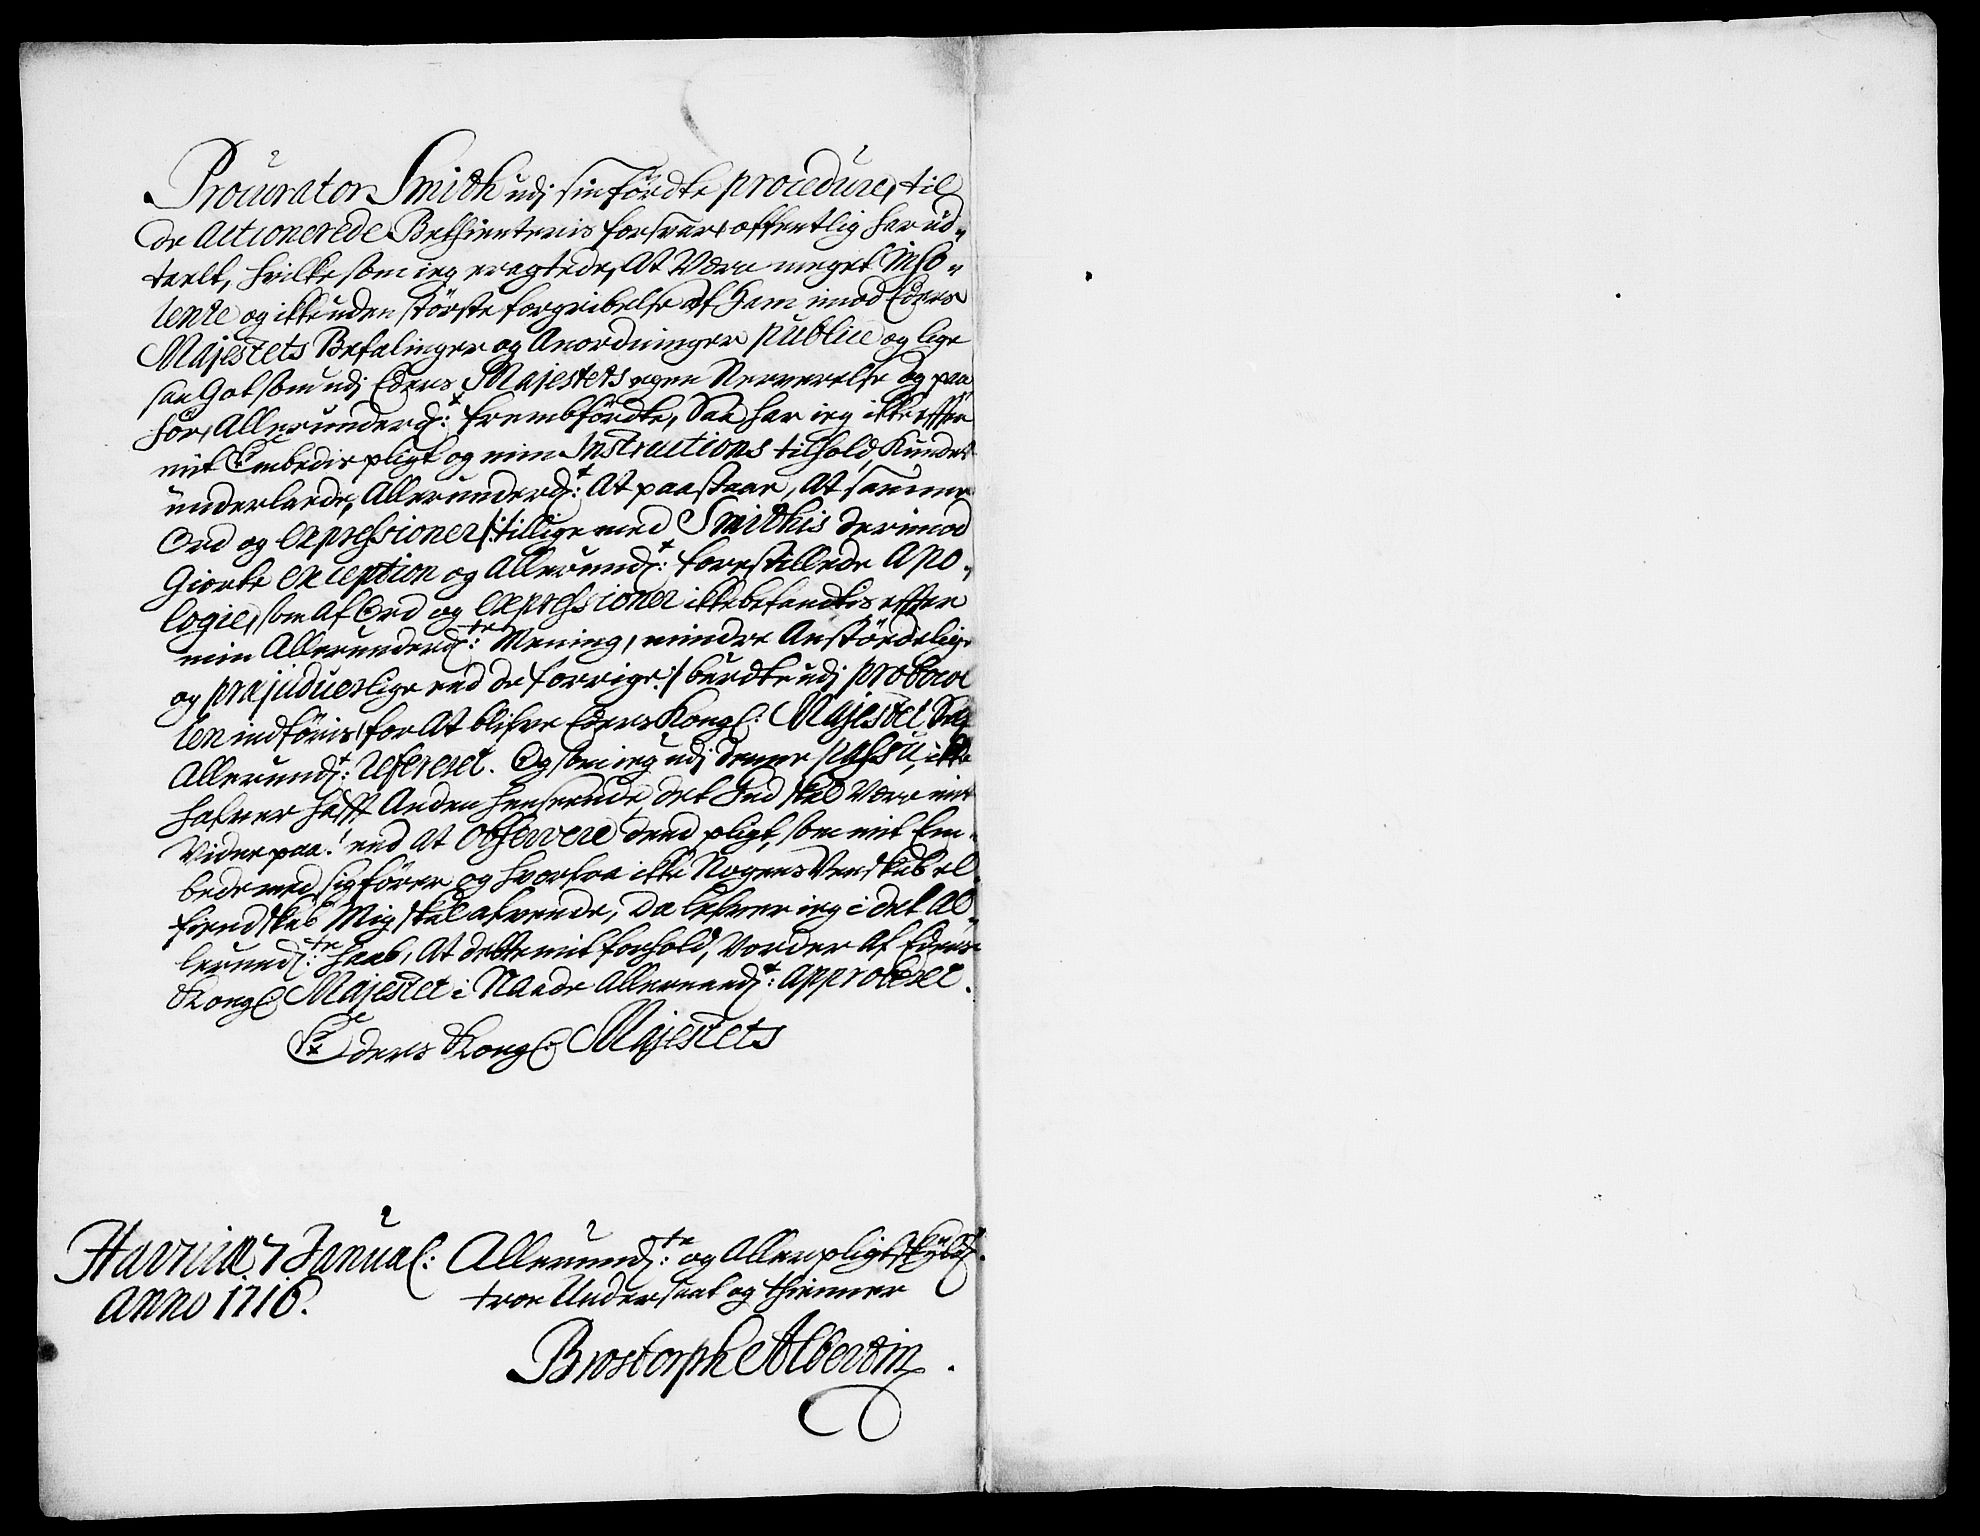 Procurator Smith udj sin fördte procedure, til
de Actionerede Bethienteris forsvar, offentlig har ud-
taelt, hvilke som ieg eragtede, At Være meget Inso-
lente og ikke uden störste forgribelse af Ham imod Eders
Majestets Befalinger og Anordninger publice og lige
saa Got som udj Eders Majestets egen Nerverelse og paa-
hör, Allerunderd:t frembfördte, Saa har ieg ikke effter
mit Embedis pligt og min Instructions tilhold, Kundet
underlaede, Allerunderd:t At paastaae, At samme
Ord og expressioner /: tillige med Smithis derimod
Giorte exception og Allerund:t forestillede Apo-
logie, som af Ord og expressioner ikke befandtis effter
min Allerunderd:te Mening, mindre Anstödelige
og præjudicerlige end de forrige :/ burdte udj protocol
len indföris, for At blifve Eders Kongl: Majestet
Allerund:t refereret. Og som ieg udj denne passu, ikke
hafver hafft Anden henseende, det Gud skal Være mit
Vidne paa! end At observere dend pligt, som mit Em-
bede med sig förer og hvorfra ikke Nogens Venskab el.
fiendskab Mig skal afvende, Da lefver ieg i det Al-
lerund:te haab, At dette mit forhold, Vorder Af Eders
Kongl: Majestet i Naade Allernaad:t approberet.
Eders Kongl: Majestets
Havniæ 7 Januar:
Anno 1716.
Allerund:te og Allerpligtskyld:
troe Undersaat og thienner
Brostorph Albertin.